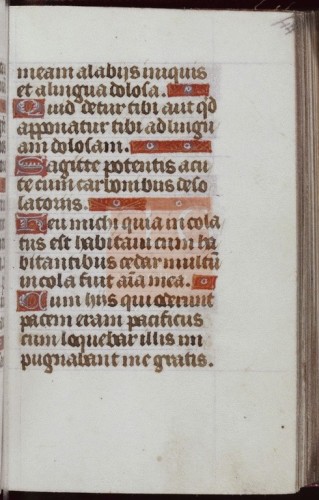 meam a labijs iniquis
et a lingua dolosa.
Quid detur tibi aut qd
apponatur tibi ad lingu
am dolosam.
Sagitte potentis acu
te cum carbonibus deso
latoriis.
Heu michi quia in cola
tus est habitaui cum ha
bitantibus cedar multū
incola fuit aīa mea.
Cum hiis qui oderunt
pacem eram pacificus
cum loquebar illis im
pugnabant me gratis.